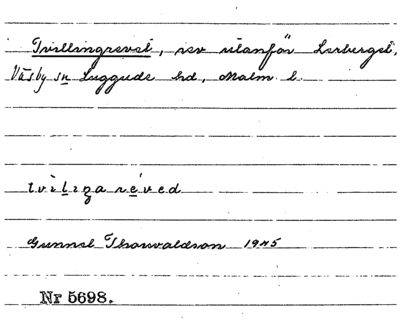 Tvillingrevet, rev utanför Lerberget,
Väsby sn Luggude hd, Malm. l.
tvìlıŋa ré̱ved
Gunnel Thorvaldson 1945
Nr 5698.